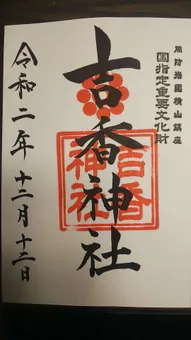 周防岩國横山鎮座
国指定重要文化財
吉香神社
吉香神社
令和二年十二月十三日